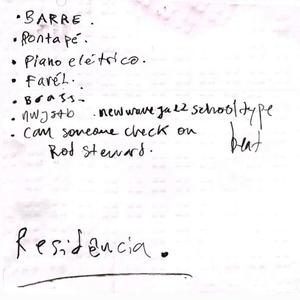 • BARRE.
• Pontapé.
• Piano elétrico.
• Farél.
• Brass.
• nwjstb . newwavejazzschool type beat
• Can someone check on
Rod Steward.
Residência.